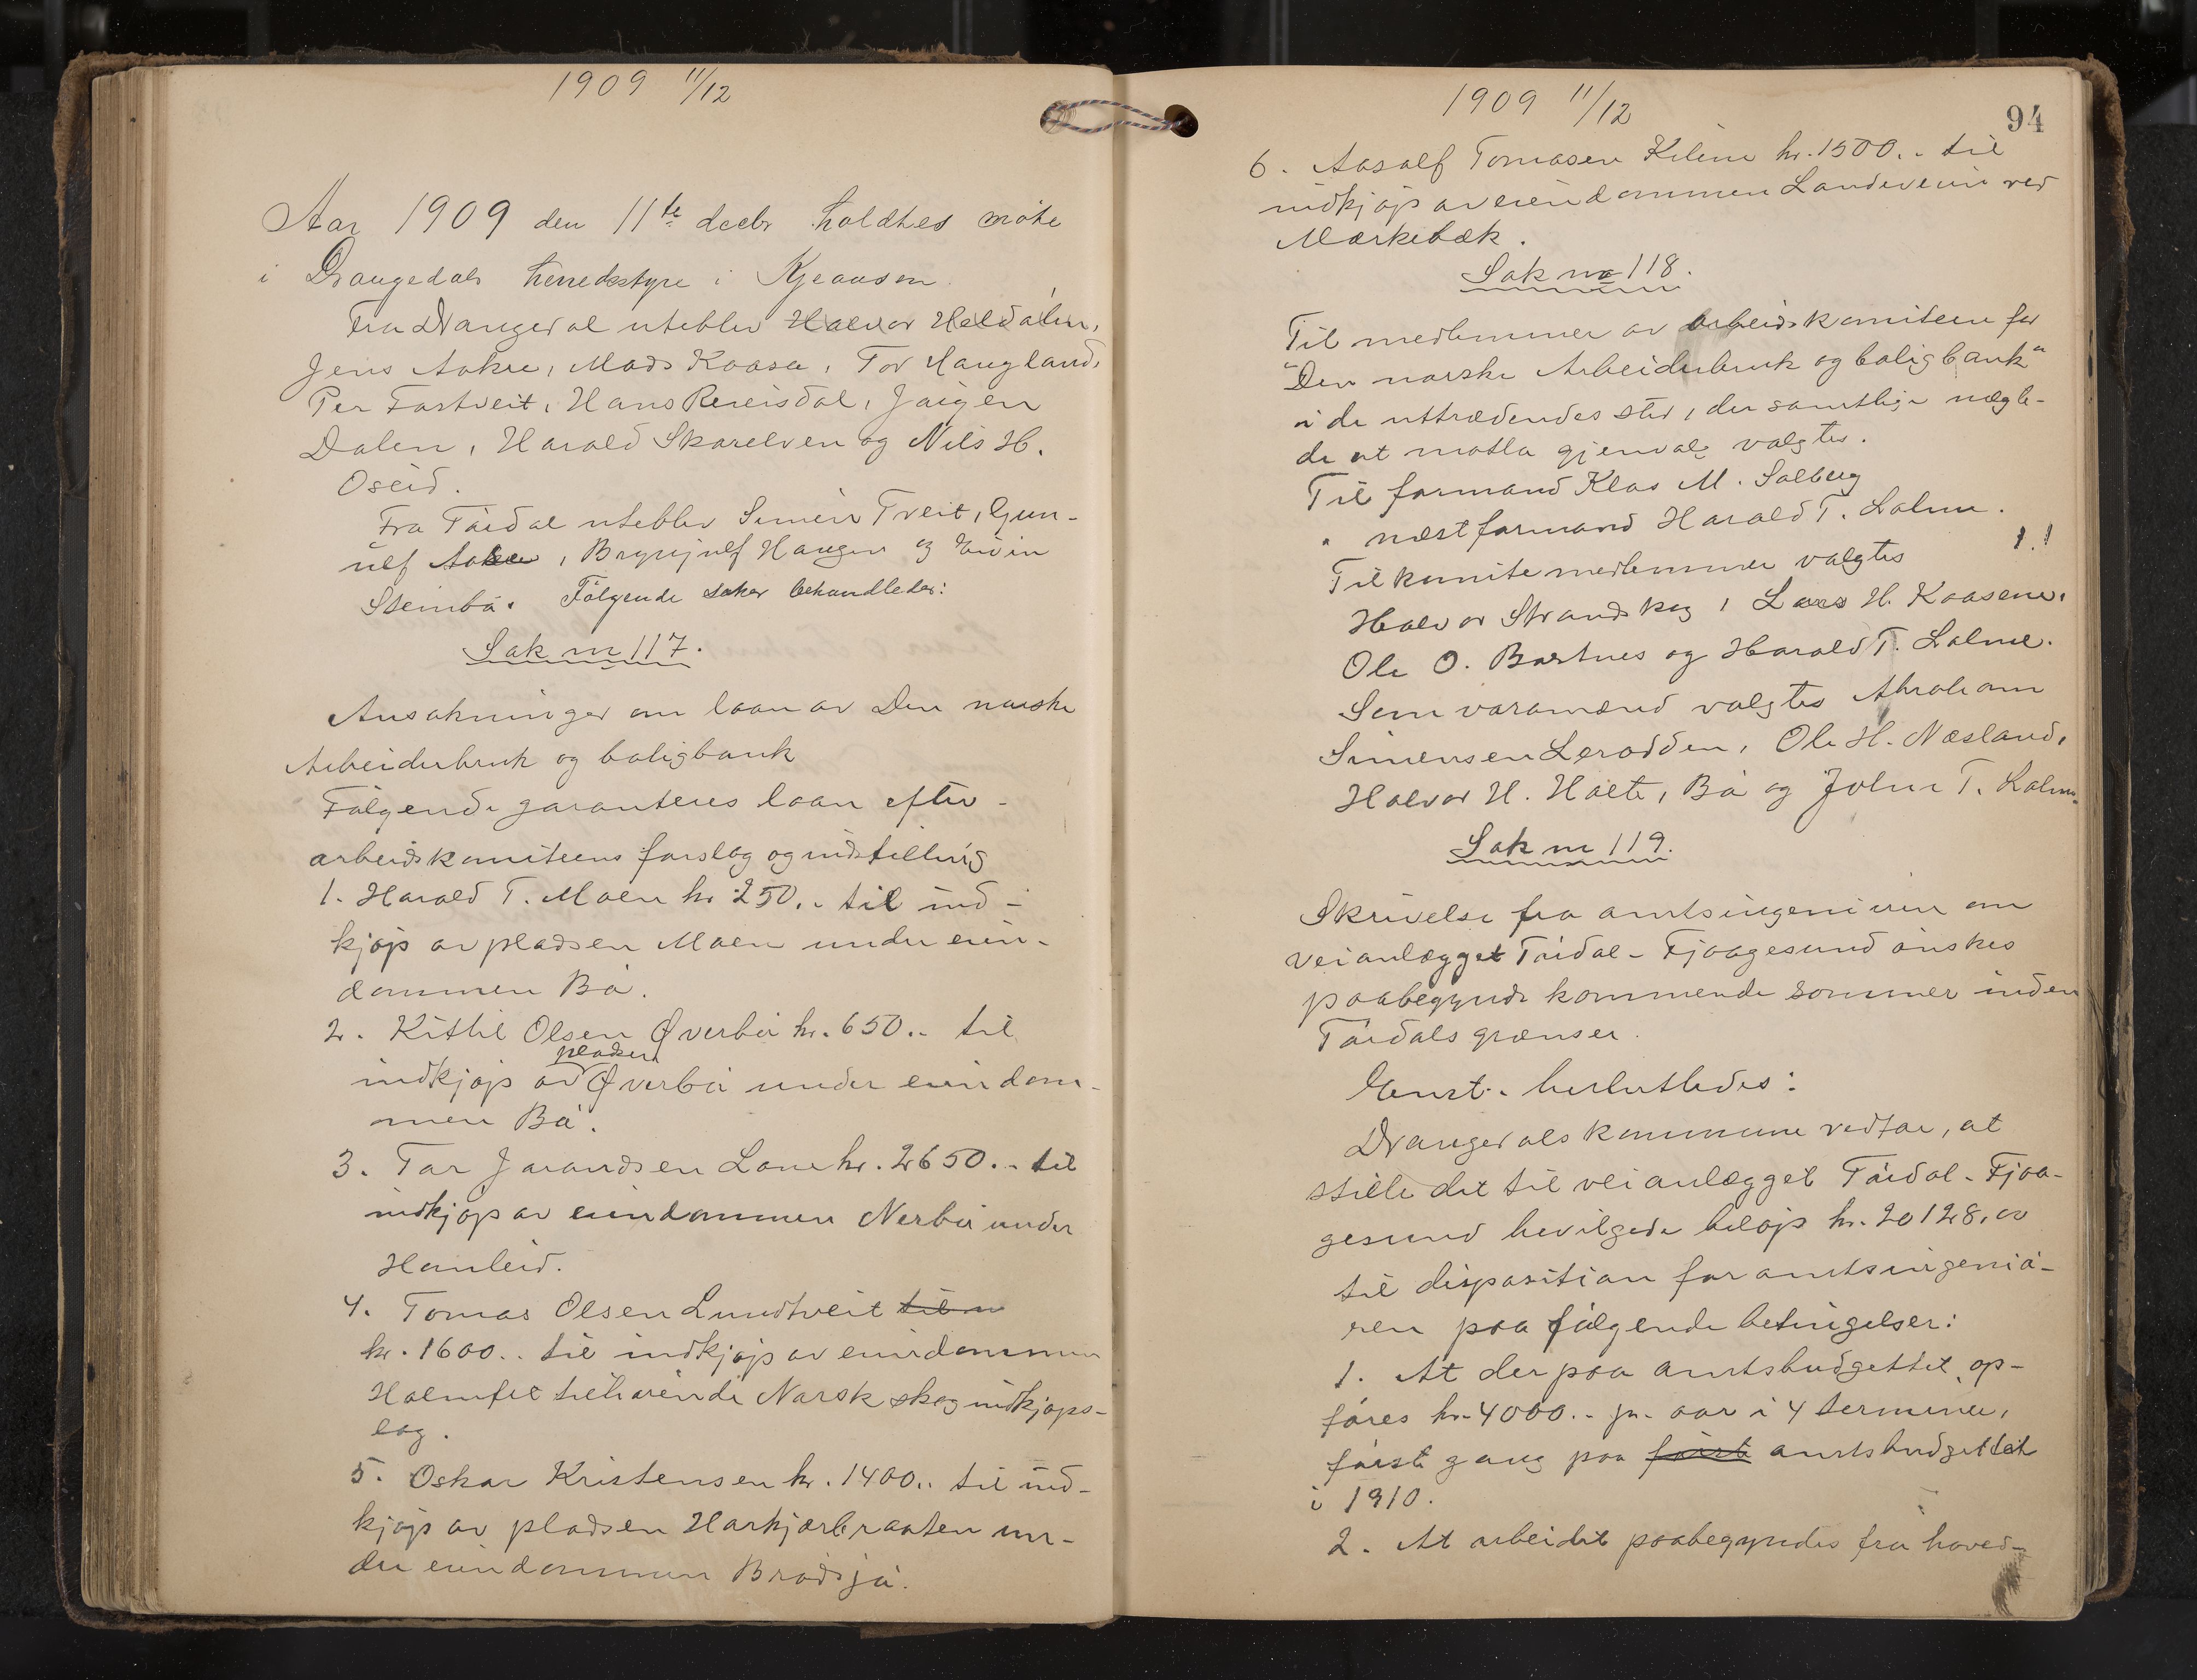 1909 11/12
Aar 1909 den 11te decbr holdtes møte
i Drangedals herredsstyre i Kjeaasen.
Fra Drangedal uteblev Halvor Heldalen,
Jens Aakre, Mads Kaasa, Tor Haugland,
Per Fostveit, Hans Reinsdal, Jørgen
Dalen, Harald Skarelven og Nils H.
Oseid.
Fra Tørdal uteblev Simen Tveit, Gun-
ulf Aakre, Brynjulf Haugen og Eivin
Steinbø. Følgende saker behandledes:
Sak nr 117.
Ansøkninger om laan av Den norske
Arbeiderbruk og boligbank
Følgende garanteres laan efter
arbeidskomiteens forslag og indstilling
1. Harald T. Moen kr 250.. til ind-
kjøp av pladsen Moen under eien-
dommen Bø.
2. Kittil Olsen Øverbø kr. 650.. til
indkjøp av pladsen Øverbø under eiendom-
men Bø.
3. Tor Jarandsen Lone kr. 2650.. til
indkjøp av eiendommen Nerbø under
Henseid.
4. Tomas Olsen Lundtveit til
kr. 1600.. til indkjøp av eiendommen
Holmfet tilhørende Norsk skogindkjøps-
lag.
5. Oskar Kristensen kr. 1400.. til ind-
kjøp av pladsen Harkjærbraaten un-
der eiendommen Brødsjø.
1909 11/12
94
6. Aasolf Tomasen Kilen kr. 1500.. til
indkjøp av eiendommen Landeveien ved
Merkebæk.
Sak no 118.
Til medlemmer av arbeidskomiteen for
"Den norske Arbeiderbruk og boligbank"
i de uttrædendes sted, der samtlige nægte-
de at motta gjenvalg valgtes.
Til formand Klas M. Solberg
" næstformand Harald T. Lolme.
Til komitemedlemmer valgtes
Halvor Strandskog, Lars H. Kaasene,
Ole O. Bostnes og Harald T. Lolme.
Som varamænd valgtes Abraham
Simensen Lerodden, Ole H. Næsland,
Halvor H. Holte, Bø og John T. Lolme.
Sak nr 119.
Skrivelse fra amtsingeniøren om
veianlægget Tørdal - Fjaagesund ønskes
paabegyndt kommende sommer inden
Tørdals grænser.
Enst. besluttedes:
Drangedals kommune vedtar, at
stille det til veianlægget Tørdal - Fjaa-
gesund bevilgede beløp kr. 20128,00
til disposition for amtsingeniø-
ren paa følgende betingelser:
1. At der paa amtsbudgettet op-
føres kr. 4000.. pr. aar i 4 terminer,
første gang paa først amtsbudgettet
i 1910.
2. At arbeidet paabegyndes fra hoved-